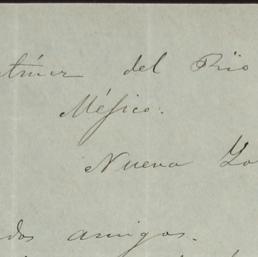 del Río
Méjico.
Nueva Yo
dos amigos.